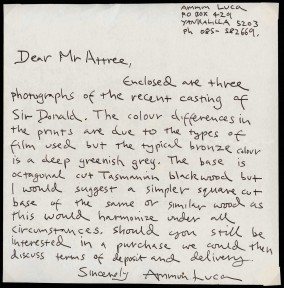 Ammon Luca
PO BOX 429
YANKALILLA 5203
Ph 085-582669.
Dear Mr Attree,
Enclosed are three
photographs of the recent casting of
Sir Donald. The colour differences in
the prints are due to the types of
film used but the typical bronze colour
is a deep greenish grey. The base is
octagonal cut Tasmanian blackwood but
I would suggest a simpler square cut
base of the same or similar wood as
this would harmonize under all
circumstances. should you still be
interested in a purchase we could then
discuss terms of deposit and delivery.
Sincerely Luca